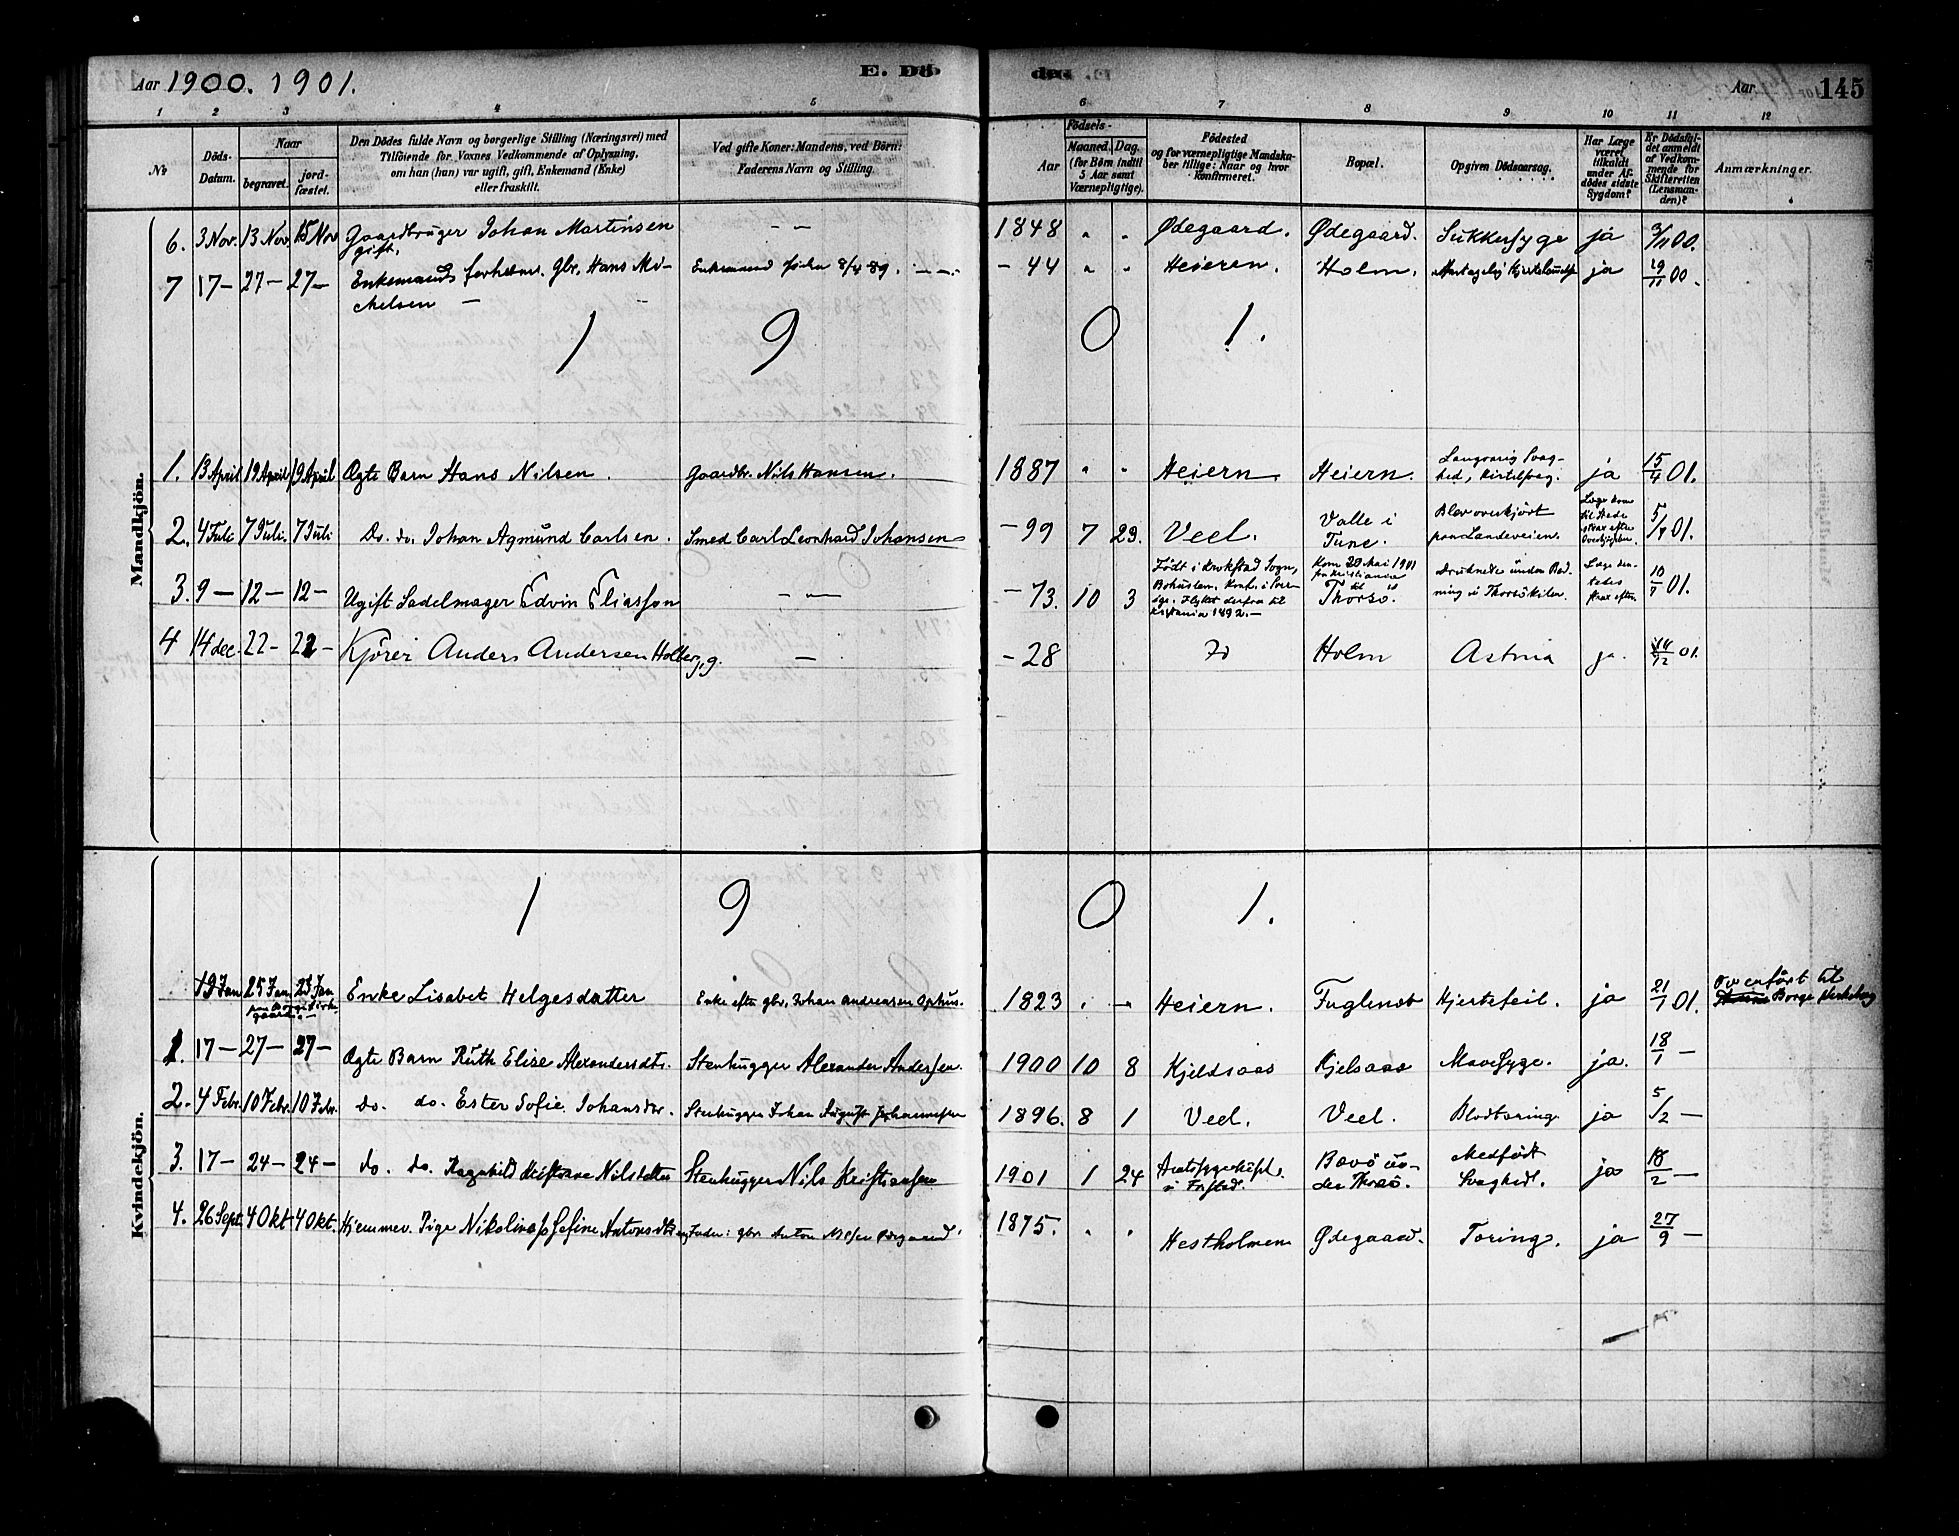 Aar 1900. 1901. E. Dö- de. Aar 145
1 2 3 4 5 6 7 8 9 10 11 12
No Döds-Datum. Naar begravet. jord-fæstet. Den Dödes fulde Navn og borgerlige Stilling (Næringsvei) med Tilföiende for Voxnes Vedkommende af Oplysning, om han (hun) var ugift, gift, Enkemand (Enke) eller fraskilt. Ved gifte Koner: Mandens, ved Börn: Faderens Navn og Stilling. Aar Födsels- Maaned. Dag. (for Börn indtil 5 Aar samt Værnepligtige). Födested og for værnepligtige Mandskaber tillige: Naar og hvor konfirmeret. Bopæl. Opgiven Dödsaarsag. Har Læge været tilkaldt under Afdödes sidste Sygdom? Er Dödsfaldet anmeldt af Vedkommende for Skifteretten (Lensmanden)? Anmærkninger.
Mandkjön.
6. 3 Nov. 13 Nov. 15 Nov Gaardbruger Johan Martinsen gift. - - 1848 " " Ødegaard. Ødegaard. Sukkersyge ja 3/11 00.
7 17 - 27 - 27 - Enkemand forhenv. Gbr. Hans Mikkelsen - Enkemand siden 8/4 89. - 44 " " Heieren. Holm. ja 19/11 00.
1 9 0 1.
1. 13 April 19 April 19 April Ægte Barn Hans Nilsen. Gaardbr. Nils Hansen. 1887 " " Heiern. Heiern. Langvarig Svaghed, Kirtelsvag. ja 15/4 01.
2. 4 Juli 7 Juli. 7 Juli Do. do. Johan Agmund Carlsen. Smed Carl Leonhard Johansen - 99 7 29. Veel. Valle i Tune. Blev overkjört paa Landeveien. Læge kom til Stede strax efter Overkjørselen. 5/7 01.
3. 9 - 12 - 12 - Ugift Sadelmager Edvin Eliasson - - - 73. 10 3 Født i Krokstad Sogn, Bohuslen. Konf. i Sverige. Flyttet derfra til Kristiania 1892. - Kom 20 Mai 1901 fra Kristiania til Thorsø. druknede under Badning i Thorsökilen. Læge strax efter. 10/7 01.
4 14 dec. 22 - 22 - Kjörer Anders Andersen Holberg, g. - - 28 Id Holm Astma ja. 14/12 01.
Kvindekjön.
1 9 0 1.
19 Jan 25 Jan 25 Jan Enke Lisabet Helgesdatter Enke efter gbr. Johan Andreasen Ophus. 1823 " - Heiern. Fuglenæb Hjertefeil. ja 21/1 01. Overfört til Borge
1. 17 - 27 - 27 - Ægte Barn Ruth Elise Alexandersdtr. Stenhugger Alexander Andersen. 1900 10 8 Kjeldsaas Kjelsaas Mavesyge. ja. 18/1 -
2. 4 Febr. 10 Febr. 10 Febr. do. do. Ester Sofie Johansdtr. Stenhugger Johan August Johannesen 1896. 8 1 Veel. Veel. Blodtæring ja 5/2 -
3. 17 - 24 - 24 - do. do. Ragnhild Kristiane Nilsdatter Stenhugger Nils Kristiansen 1901 1 24 Amtssygehuset i Fr.stad. Bovö under Thorsö. Medfödt Svaghed. ja 18/2 -
4. 26 Sept. 4 Okt. 4 Okt. Hjemmev. Pige Nikoline Josefine Antonsdtr Fader: gbr Anton Ødegaard. 1875. " " Hestholmen Ødegaard. Tæring. ja 27/9 -